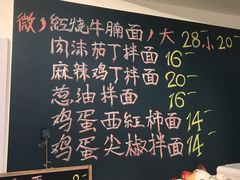 微辣 紅燒牛腩面,大28-小20-
肉沫茄丁拌面 16-
麻辣鸡丁拌面 20-
葱油拌面 16-
鸡蛋西紅柿面 14-
鸡蛋尖椒拌面 14-